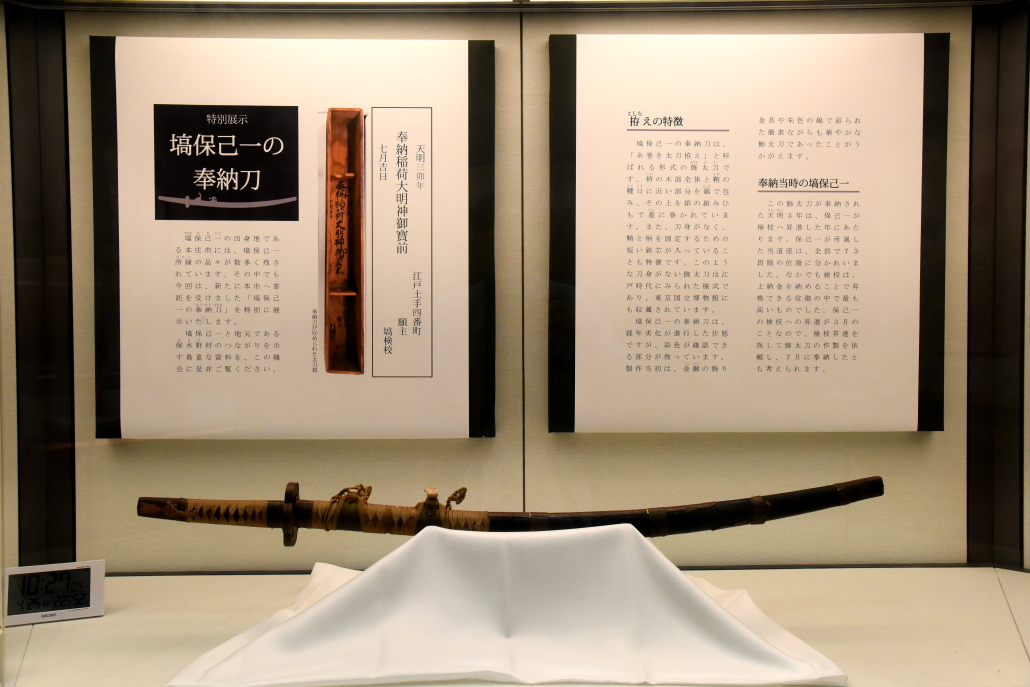 特別展示
塙保己一の
奉納刀
塙保己一の出身地であ
る本庄市には、塙保己一
所縁の品々が数多く残さ
れています。その中でも
今回は、新たに本市へ寄
託を受けました「塙保己
一の奉納刀」を特別に展
示いたします。
塙保己一と地元である
保木野村のつながりを示
す貴重な資料を、この機
会に是非ご覧ください。
奉納刀が収められた太刀箱
天明三卯年
奉納稲荷大明神御寶前
七月吉日
江戸土手四番町
願主
塙検校
こしら
拵えの特徴
塙保己一の奉納刀は、
「糸巻き太刀拵え」と呼
ばれる形式の飾太刀で
す。柄の木部全体と鞘の
鯉口に近い部分を錦で包
み、その上を絹の組みひ
もで菱に巻かれていま
す。また、刀身がなく、
鞘と柄を固定するための
短い鉄芯が入っているこ
とも特徴です。このよう
な刀身がない飾太刀は江
戸時代にみられた様式で
あり、東京国立博物館に
も収蔵されています。
塙保己一の奉納刀は、
経年劣化が進行した状態
ですが、彩色が確認でき
る部分が残っています。
製作当初は、金銅の飾り
金具や朱色の綿で彩られ
た簡素ながらも華やかな
飾太刀であったことがう
かがえます。
奉納当時の塙保己一
この飾太刀が奉納され
た天明３年は、保己一が
検校へ昇進した年にあた
ります。保己一が所属し
た当道座は、全部で７３
段階の位階に分かれいま
した。なかでも検校は、
上納金を納めることで昇
格できる位階の中で最も
高いものでした。保己一
の検校への昇進が３月の
ことなので、検校昇進を
祝して飾太刀の作製を依
頼し、７月に奉納したと
も考えられます。
10:27